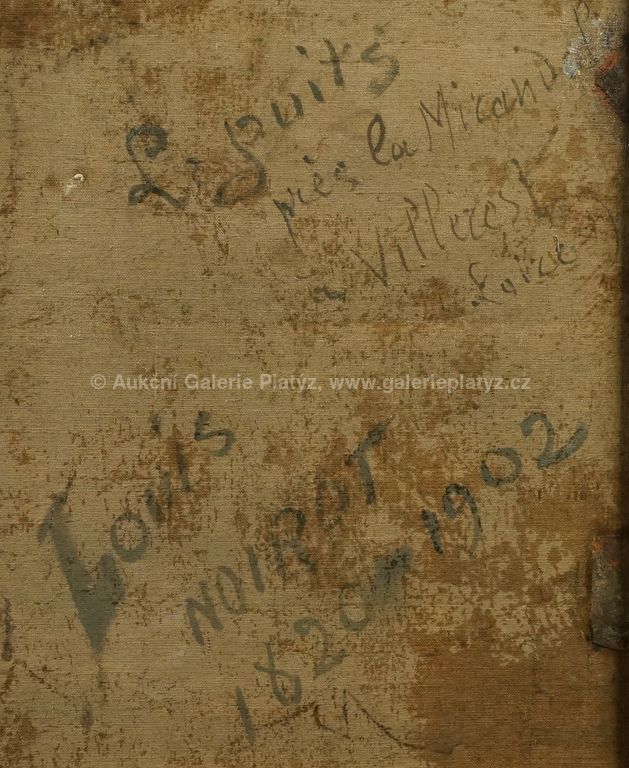 Le puits
près la Mirand
à Villerest
Loire
© Aukční Galerie Platyz, www.galerieplatyz.cz
Louis
NOIROT
1820-1902